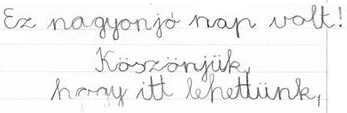 Ez nagyonjó nap volt!
Köszönjük,
hogy itt lehettünk,